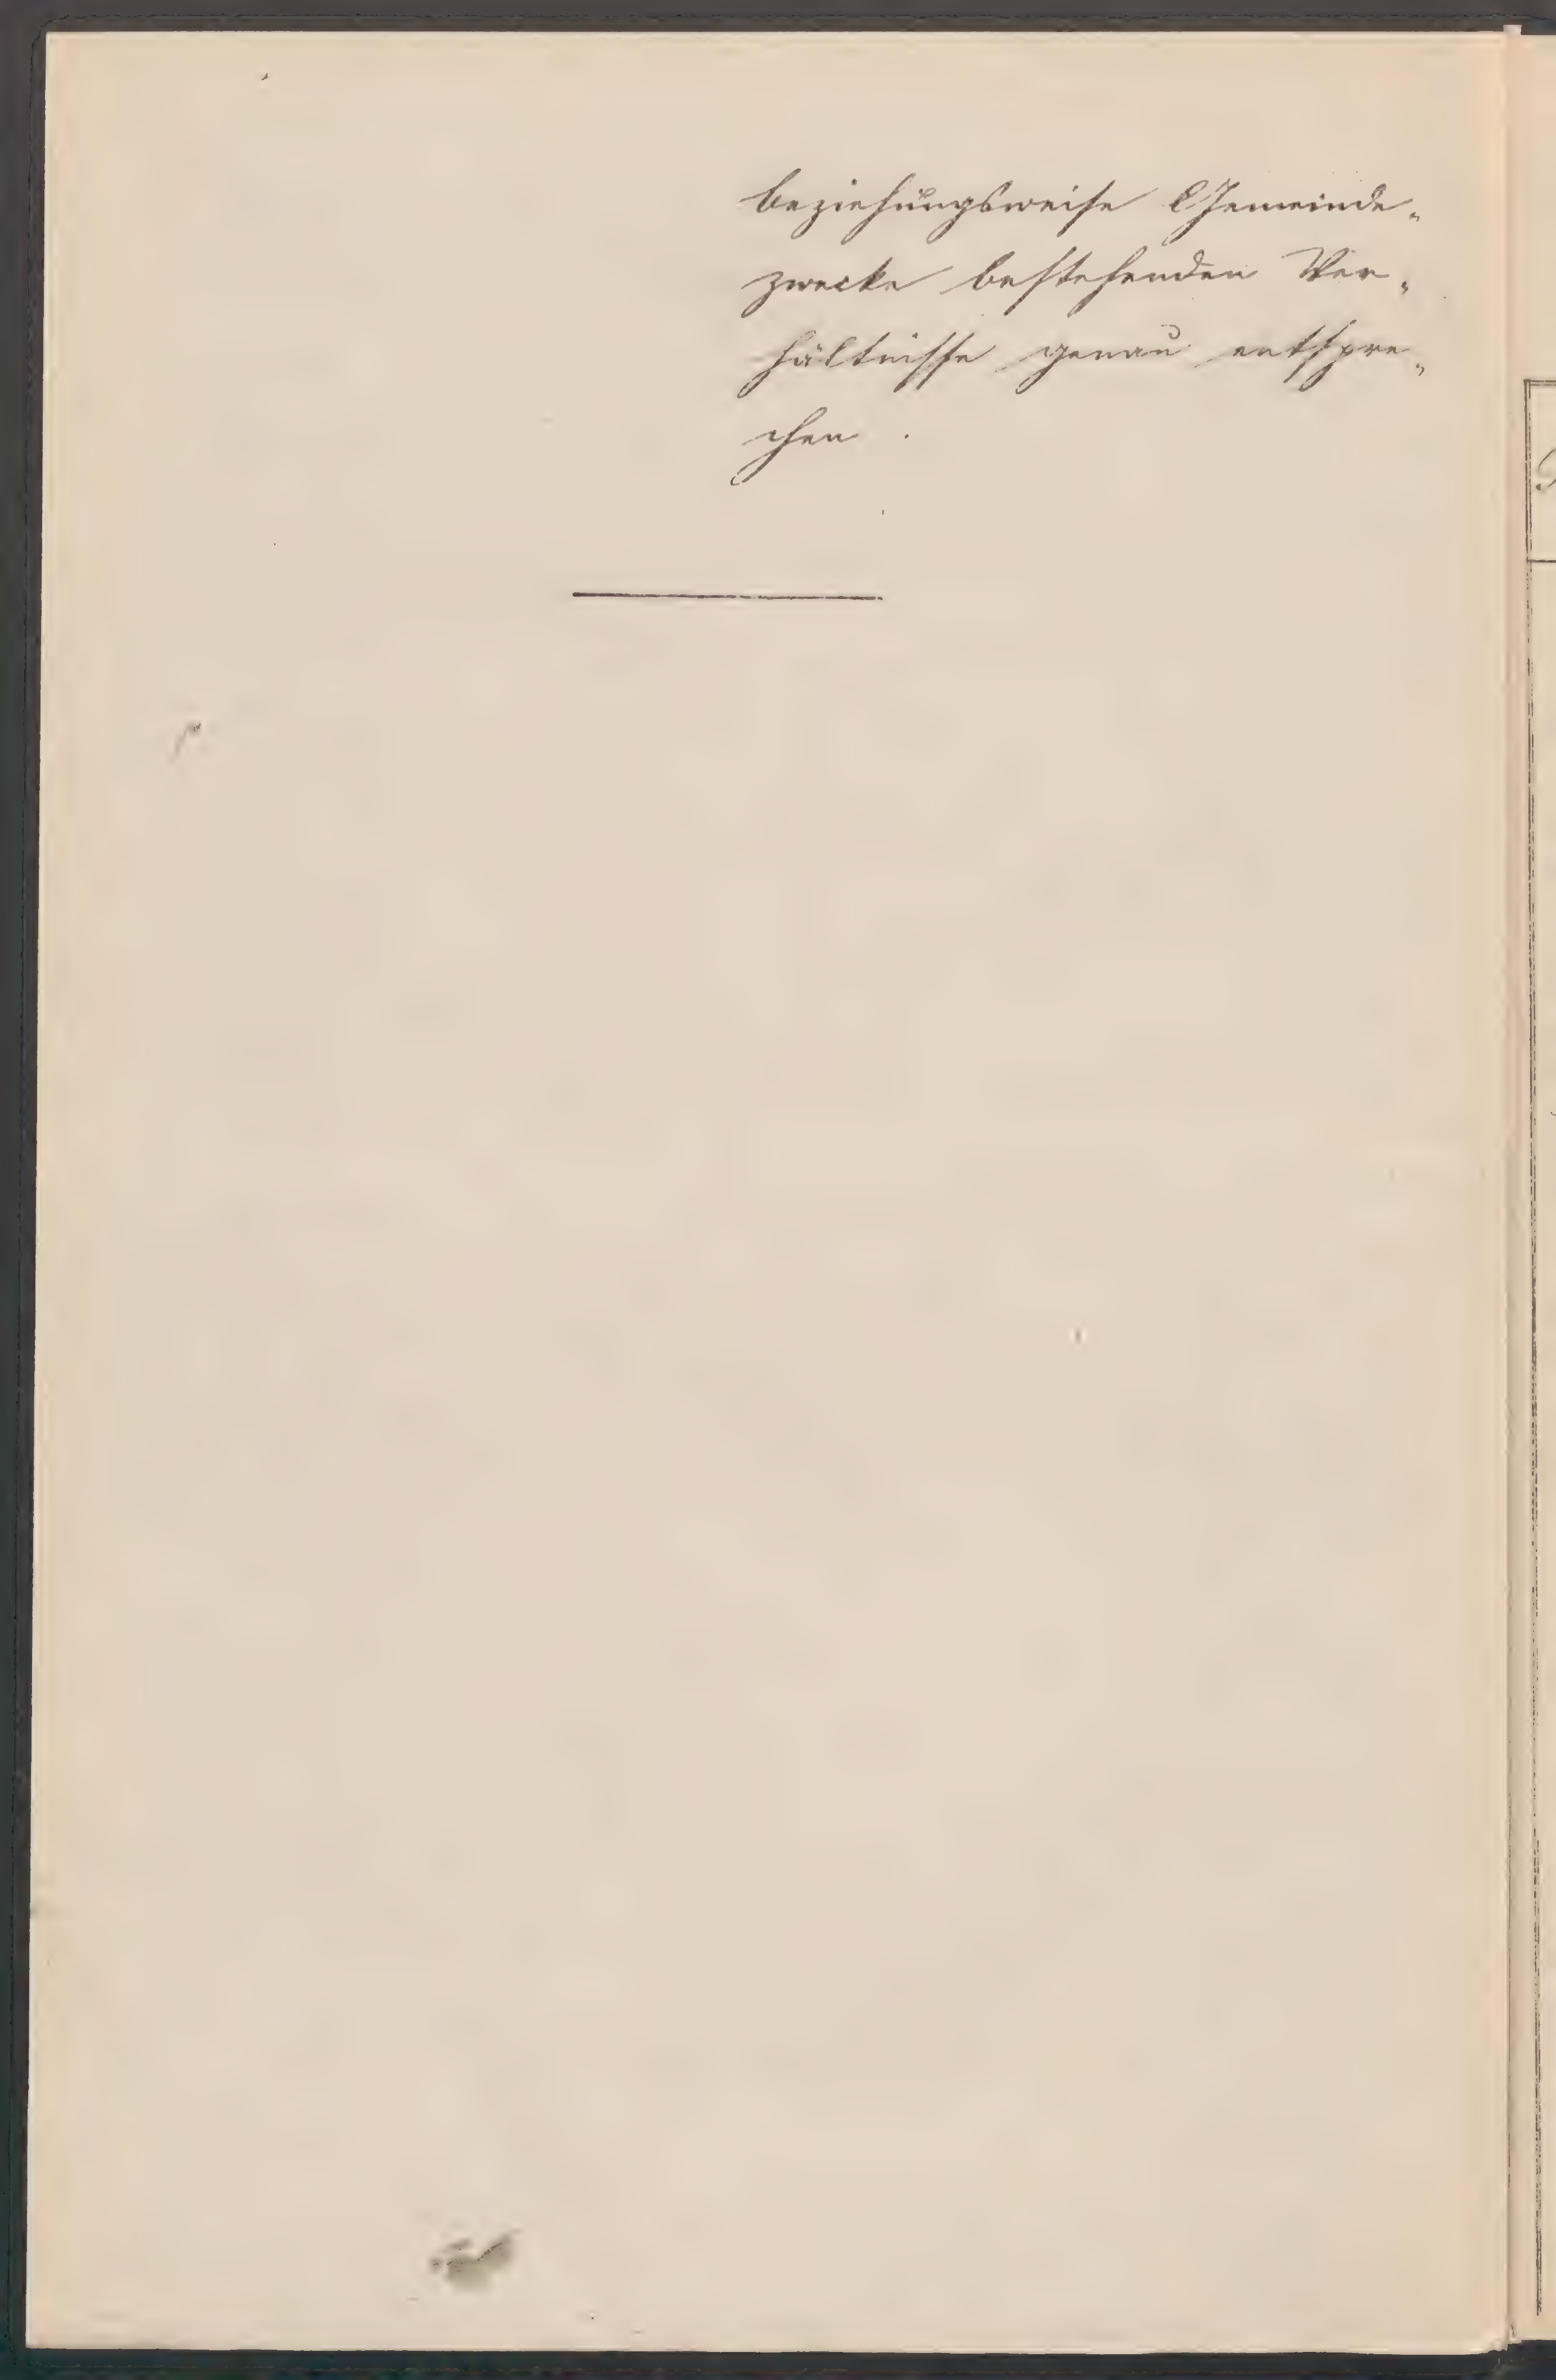 beziehungsweise Gemeinde-
zwecke bestehenden Ver-
hältnisse genau entspre-
chen.